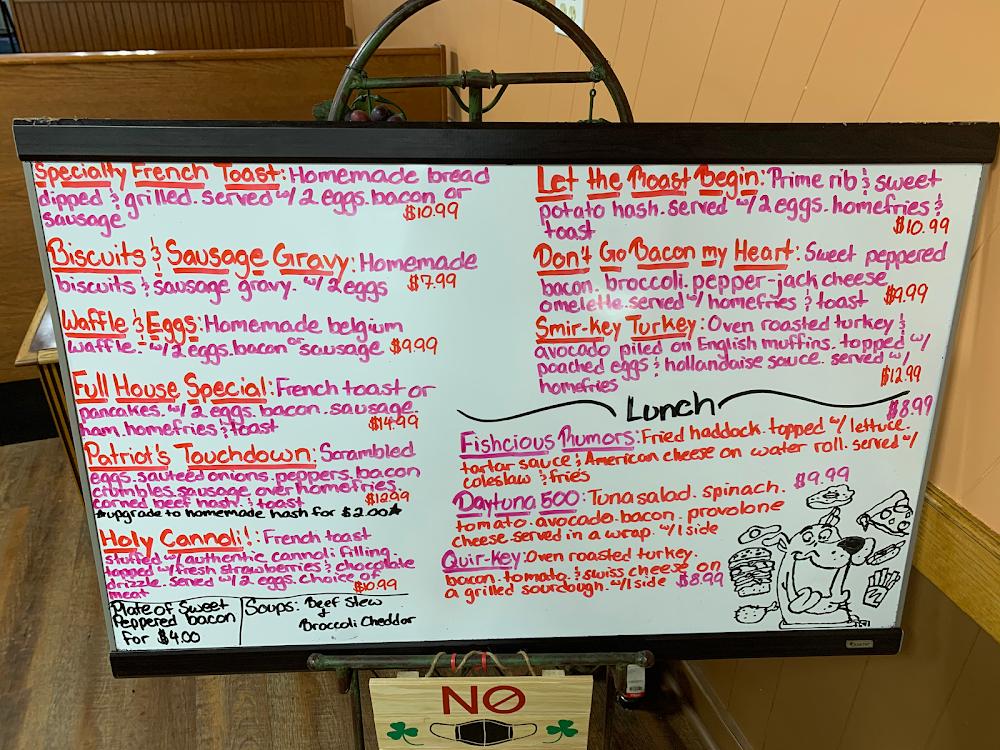 Specialty French Toast: Homemade bread
dipped & grilled. served w/ 2 eggs. bacon or
sausage $10.99
Biscuits & Sausage Gravy: Homemade
biscuits & sausage gravy. w/ 2 eggs $7.99
Waffle & Eggs: Homemade belgium
waffle. w/ 2 eggs. bacon or sausage $9.99
Full House Special: French toast or
pancakes. w/ 2 eggs. bacon. sausage.
ham. homefries & toast $14.99
Patriot's Touchdown: Scrambled
eggs. sauteed onions. peppers. bacon
crumbles. sausage over homefries.
corned beef hash. & toast $12.99
*upgrade to homemade hash for $2.00*
Holy Cannoli!: French toast
stuffed w/ authentic cannoli filling.
topped w/ fresh strawberries & chocolate
drizzle. served w/ 2 eggs. choice of
meat $10.99
Plate of Sweet
Peppered bacon
for $4.00
Soups: Beef Stew
&
Broccoli Cheddar
Let the Roast Begin: Prime rib & sweet
potato hash. served w/ 2 eggs. homefries &
toast $10.99
Don't Go Bacon my Heart: Sweet peppered
bacon. broccoli. pepper-jack cheese
omelette. served w/ homefries & toast $9.99
Smir-Key Turkey: Oven roasted turkey &
avocado piled on English muffins. topped w/
poached eggs & hollandaise sauce. served w/
homefries $12.99
Lunch
Fishcious Rumors: Fried haddock. topped w/ lettuce. $8.99
tartar sauce & American cheese on water roll. served w/
coleslaw & fries
Daytuna 500: Tuna salad. spinach. $9.99
tomato. avocado. bacon. provolone
cheese. served in a wrap. w/ 1 side
Quir-Key: Oven roasted turkey.
bacon. tomato. & swiss cheese on
a grilled sourdough. w/ 1 side $8.99
NO